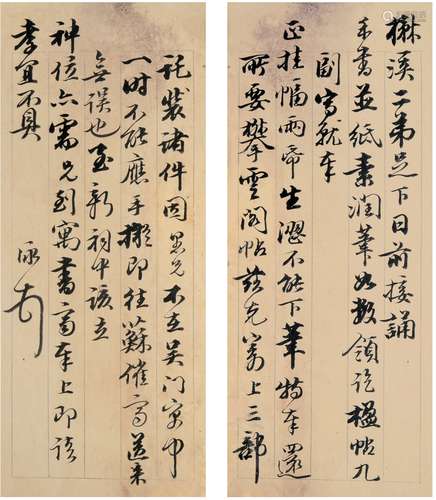 楙溪二弟足下日前接誦
手書並紙素潤筆如數領訖楹帖九
副寫就奉
正挂幅兩帋生澀不能下筆特奉還
所要攀雲閣帖茲先寄上三部
託裝諸件因眾兄不在吳門寓中
一时不能應手擬即往蘇催寫送来
無误也至新祠中該立
神位亦需兄到寓書寄奉上即請
孝宜不具
泳頓首